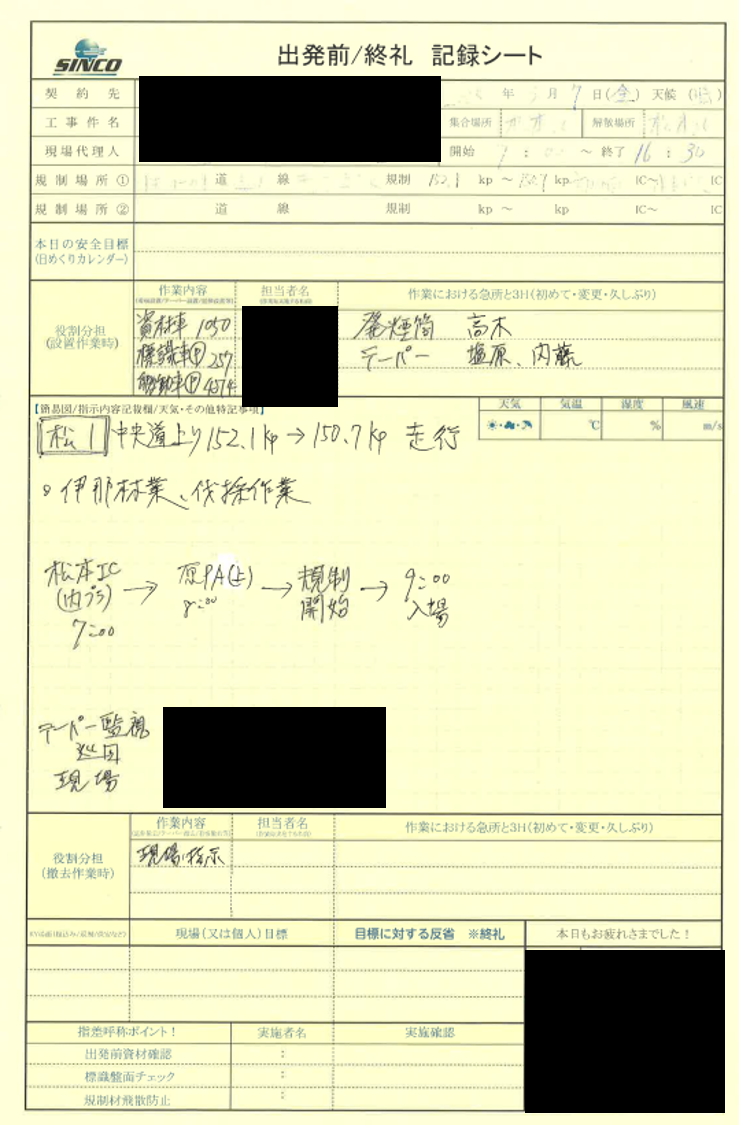 SINCO
出発前/終礼 記録シート
契約先 年 月 7 日(金) 天候(晴)
工事件名 集合場所 解散場所
現場代理人 開始 7:00 ~ 終了 16:30
規制場所① 道 線 規制 152.1 kp ~ 150.7 kp IC~ IC
規制場所② 道 線 規制 kp ~ kp IC~ IC
本日の安全目標
(日めくりカレンダー)
役割分担
(設置作業時)
作業内容 担当者名 作業における急所と3H(初めて・変更・久しぶり)
資材車 1050 発煙筒 高木
標識車Ⓟ 257 テーパー 塩原、内藤
Ⓟ 4574
【簡易図/指示内容記抜欄/天気・その他特記事項】
天気 気温 湿度 風速
℃ % m/s
松1 中央道上り152.1kp→150.7kp 走行
。伊那林業、伐採作業
松本IC → 原PA(上) → 規制 → 9:00
(内プラ) 8:00 開始 入場
7:00
テーパー監視
巡回
現場
役割分担
(撤去作業時)
作業内容 担当者名 作業における急所と3H(初めて・変更・久しぶり)
現場指示
現場(又は個人)目標 目標に対する反省 ※終礼 本日もお疲れさまでした!
指差呼称ポイント! 実施者名 実施確認
出発前資材確認 :
標識盤面チェック :
規制材飛散防止 :